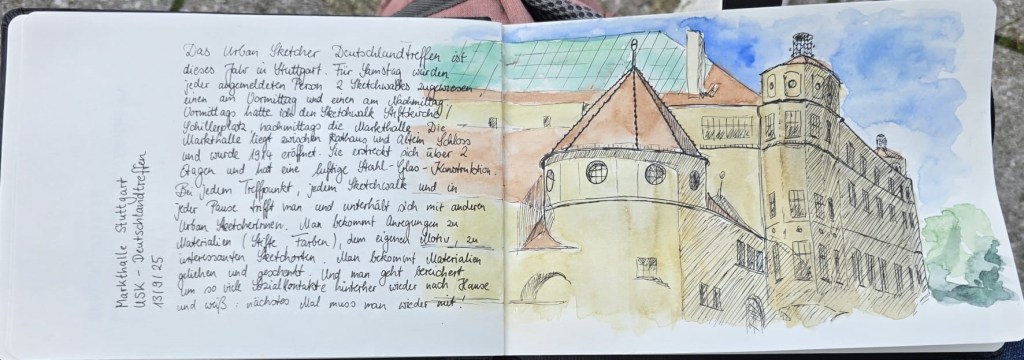 Das Urban Sketcher Deutschlandtreffen ist
dieses Jahr in Stuttgart. Für Samstag wurden
jeder angemeldeten Person 2 Sketchwalks zugewiesen,
einen am Vormittag und einen am Nachmittag.
Vormittags hatte ich den Sketchwalk Stiftskirche/
Schillerplatz, nachmittags die Markthalle. Die
Markthalle liegt zwischen Rathaus und Altem Schloss
und wurde 1914 eröffnet. Sie erstreckt sich über 2
Etagen und hat eine luftige Stahl-Glas-Konstruktion.
Bei jedem Treffpunkt, jedem Sketchwalk und in
jeder Pause trifft man und unterhält sich mit anderen
Urban SketcherInnen. Man bekommt Anregungen zu
Materialien (Stifte, Farben), dem eigenen Motiv, zu
interessanten Sketchorten. Man bekommt Materialien
geliehen und geschenkt. Und man geht bereichert
um so viele Sozialkontakte hinterher wieder nach Hause
und weiß: nächstes Mal muss man wieder mit!
Markthalle Stuttgart
USK - Deutschlandtreffen
13/9/25